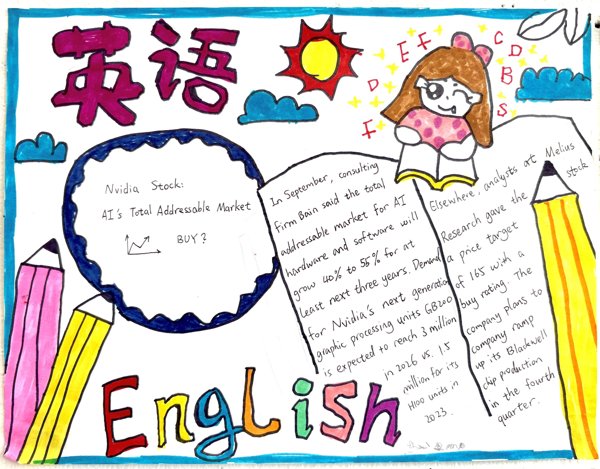 英语
F
D
E
F
C
D
B
S
Nvidia Stock:
AI's Total Addressable Market
BUY?
In September, consulting
Firm Bain said the total
addressable market for AI
hardware and software will
grow 40% to 55% for at
least next three years. Demand
for Nvidia's next generation
graphic processing units GB200
is expected to reach 3 million
in 2026 vs. 1.5
million for its
H100 units in
2023.
Elsewhere, analysts at Melius
Research gave the stock
a price target
of 165 with a
buy rating. The
company plans to
company ramp
up its Blackwell
chip production
in the fourth
quarter.
English